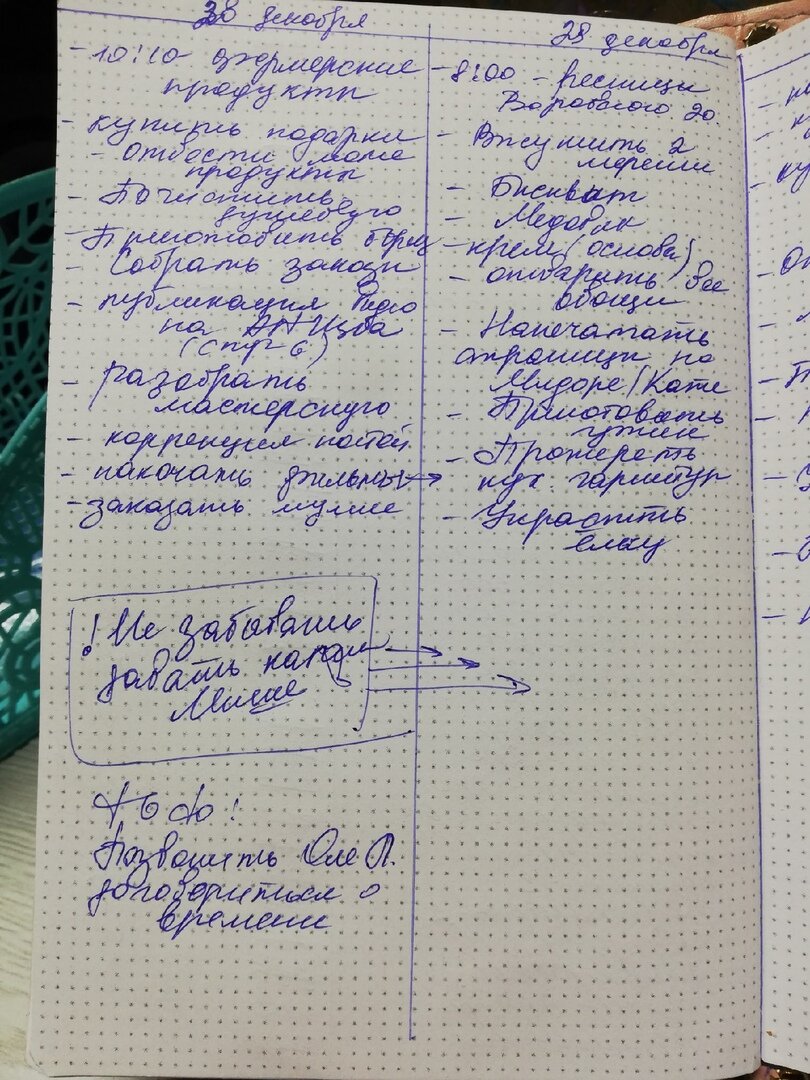 28 декабря
- 10:10 фермерские
продукты
- купить подарки
- отвести маме
продукты
- Почистить
душевую
- Приготовить борщ
- Собрать заказы
- публикация
на
(стр 6)
- разобрать
мастерскую
- коррекция
- накачать фильмы →
- заказать
! Не забываем
давать капли
Мише
to do!
Позвонить Оле Л.
договориться о
времени
29 декабря
- 8:00 - ресницы
20.
- Высушить 2
меренги
- Бисквит
- Медовик
- крем (основа)
- отварить все
овощи
- Напечатать
страницы по
/ Кате
- Приготовить
ужин
- Протереть
кух. гарнитур
- Украсить
ёлку